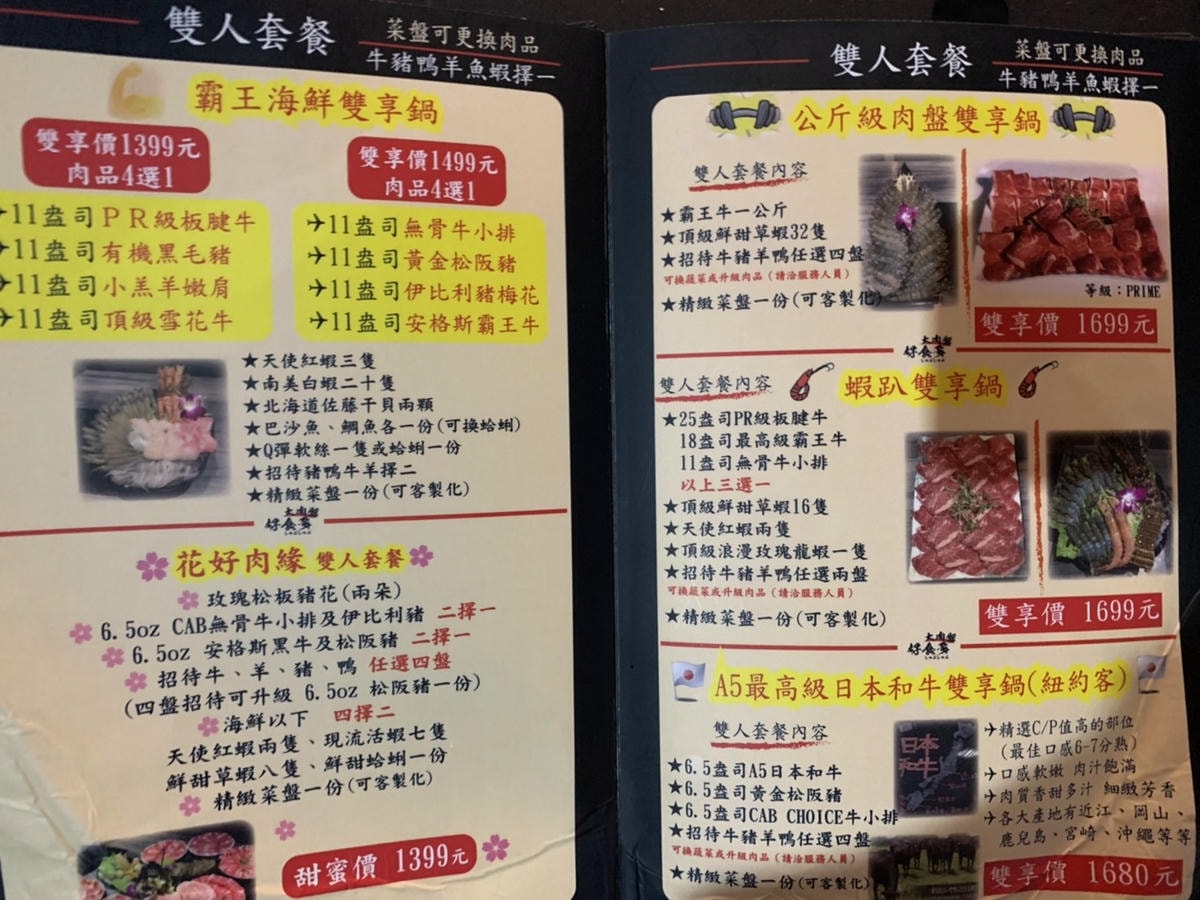 雙人套餐
菜盤可更換肉品
牛豬鴨羊魚蝦擇一
霸王海鮮雙享鍋
雙享價1399元
肉品4選1
雙享價1499元
肉品4選1
✈11盎司PR級板腱牛
✈11盎司有機黑毛豬
✈11盎司小羔羊嫩肩
✈11盎司頂級雪花牛
✈11盎司無骨牛小排
✈11盎司黃金松阪豬
✈11盎司伊比利豬梅花
✈11盎司安格斯霸王牛
★天使紅蝦三隻
★南美白蝦二十隻
★北海道佐藤干貝兩顆
★巴沙魚、鯛魚各一份(可換蛤蜊)
★Q彈軟絲一隻或蛤蜊一份
★招待豬鴨牛羊擇二
★精緻菜盤一份(可客製化)
花好肉緣 雙人套餐
玫瑰松板豬花(兩朵)
6.5oz CAB無骨牛小排及伊比利豬 二擇一
6.5oz 安格斯黑牛及松阪豬 二擇一
招待牛、羊、豬、鴨 任選四盤
(四盤招待可升級 6.5oz 松阪豬一份)
海鮮以下 四擇二
天使紅蝦兩隻、現流活蝦七隻
鮮甜草蝦八隻、鮮甜蛤蜊一份
精緻菜盤一份(可客製化)
甜蜜價 1399元
雙人套餐
菜盤可更換肉品
牛豬鴨羊魚蝦擇一
公斤級肉盤雙享鍋
雙人套餐內容
★霸王牛一公斤
★頂級鮮甜草蝦32隻
★招待牛豬羊鴨任選四盤
可換蔬菜或升級肉品(請洽服務人員)
★精緻菜盤一份(可客製化)
等級：PRIME
雙享價 1699元
雙人套餐內容
蝦趴雙享鍋
★25盎司PR級板腱牛
18盎司最高級霸王牛
11盎司無骨牛小排
以上三選一
★頂級鮮甜草蝦16隻
★天使紅蝦兩隻
★頂級浪漫玫瑰龍蝦一隻
★招待牛豬羊鴨任選兩盤
可換蔬菜或升級肉品(請洽服務人員)
★精緻菜盤一份(可客製化)
雙享價 1699元
A5最高級日本和牛雙享鍋(紐約客)
雙人套餐內容
★6.5盎司A5日本和牛
★6.5盎司黃金松阪豬
★6.5盎司CAB CHOICE牛小排
★招待牛豬羊鴨任選四盤
可換蔬菜或升級肉品(請洽服務人員)
★精緻菜盤一份(可客製化)
日本
和牛
✈精選C/P值高的部位
(最佳口感6-7分熟)
✈口感軟嫩 肉汁飽滿
✈肉質香甜多汁 細緻芳香
✈各大產地有近江、岡山、
鹿兒島、宮崎、沖繩等等
雙享價 1680元